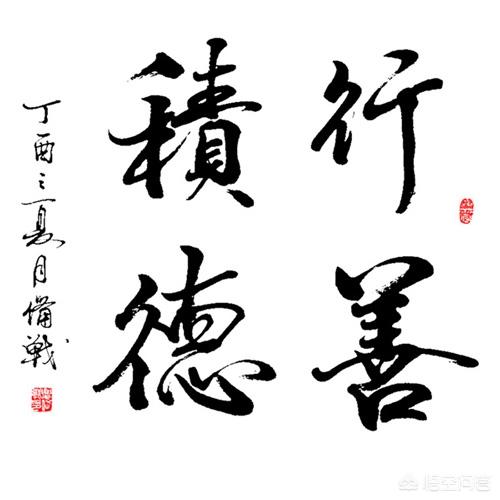 行善
積德
丁酉之夏月備戰
悟空问答